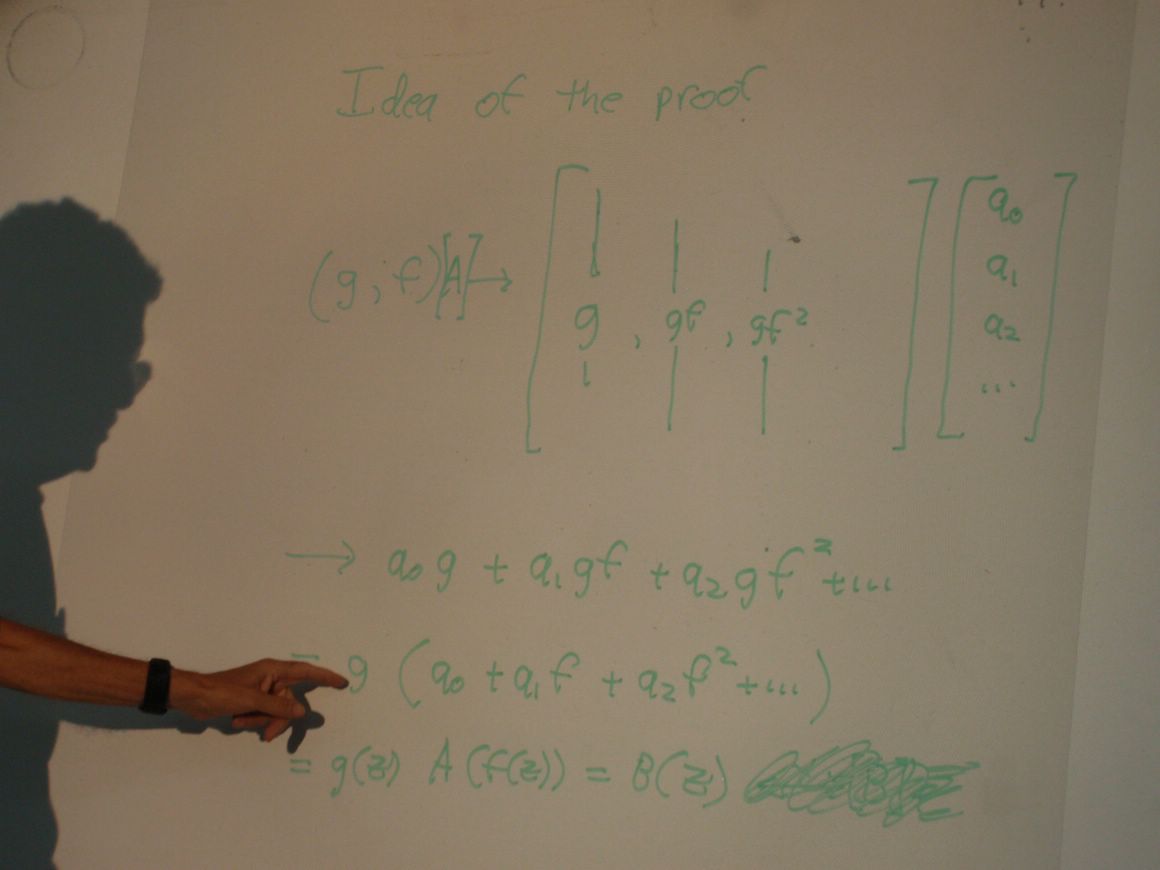 Idea of the proof
(g, f)[A] → [g, gf, gf²] [a₀ a₁ a₂ ...]
→ a₀g + a₁gf + a₂gf² + ...
= g (a₀ + a₁f + a₂f² + ...)
= g(z) A(f(z)) = B(z)